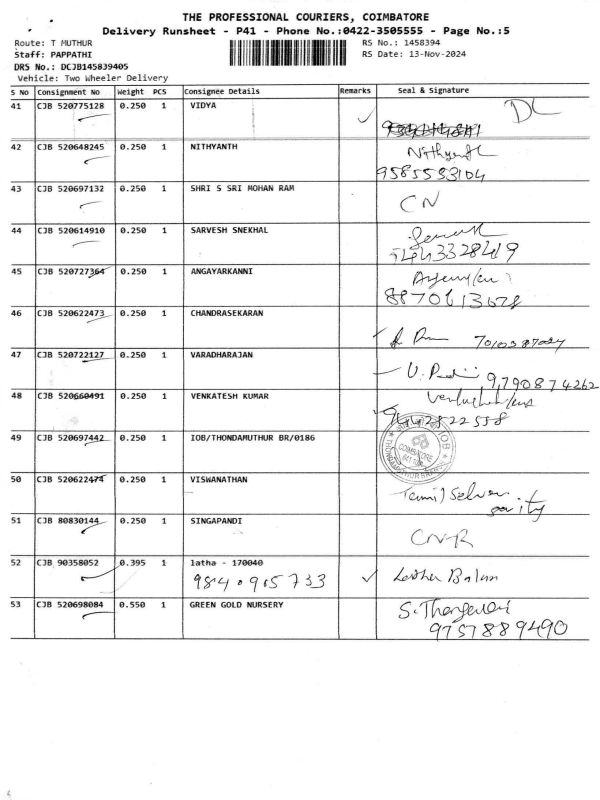 THE PROFESSIONAL COURIERS, COIMBATORE
Delivery Runsheet - P41 - Phone No.:0422-3505555 - Page No.:5
Route: T MUTHUR RS No.: 1458394
Staff: PAPPATHI RS Date: 13-Nov-2024
DRS No.: DCJB145839405
Vehicle: Two Wheeler Delivery
S No Consignment No Weight PCS Consignee Details Remarks Seal & Signature
41 CJB 520775128 0.250 1 VIDYA DL
42 CJB 520648245 0.250 1 NITHYANTH
9585593104
43 CJB 520697132 0.250 1 SHRI S SRI MOHAN RAM CN
44 CJB 520614910 0.250 1 SARVESH SNEKHAL
45 CJB 520727364 0.250 1 ANGAYARKANNI
8870613678
46 CJB 520622473 0.250 1 CHANDRASEKARAN
47 CJB 520722127 0.250 1 VARADHARAJAN
9790874262
48 CJB 520660491 0.250 1 VENKATESH KUMAR
49 CJB 520697442 0.250 1 IOB/THONDAMUTHUR BR/0186
COIMBATORE
50 CJB 520622474 0.250 1 VISWANATHAN
Tamil Selvan
51 CJB 80830144 0.250 1 SINGAPANDI CNR
52 CJB 90358052 0.395 1 latha - 170040
9840915733
53 CJB 520698084 0.550 1 GREEN GOLD NURSERY
9757889490